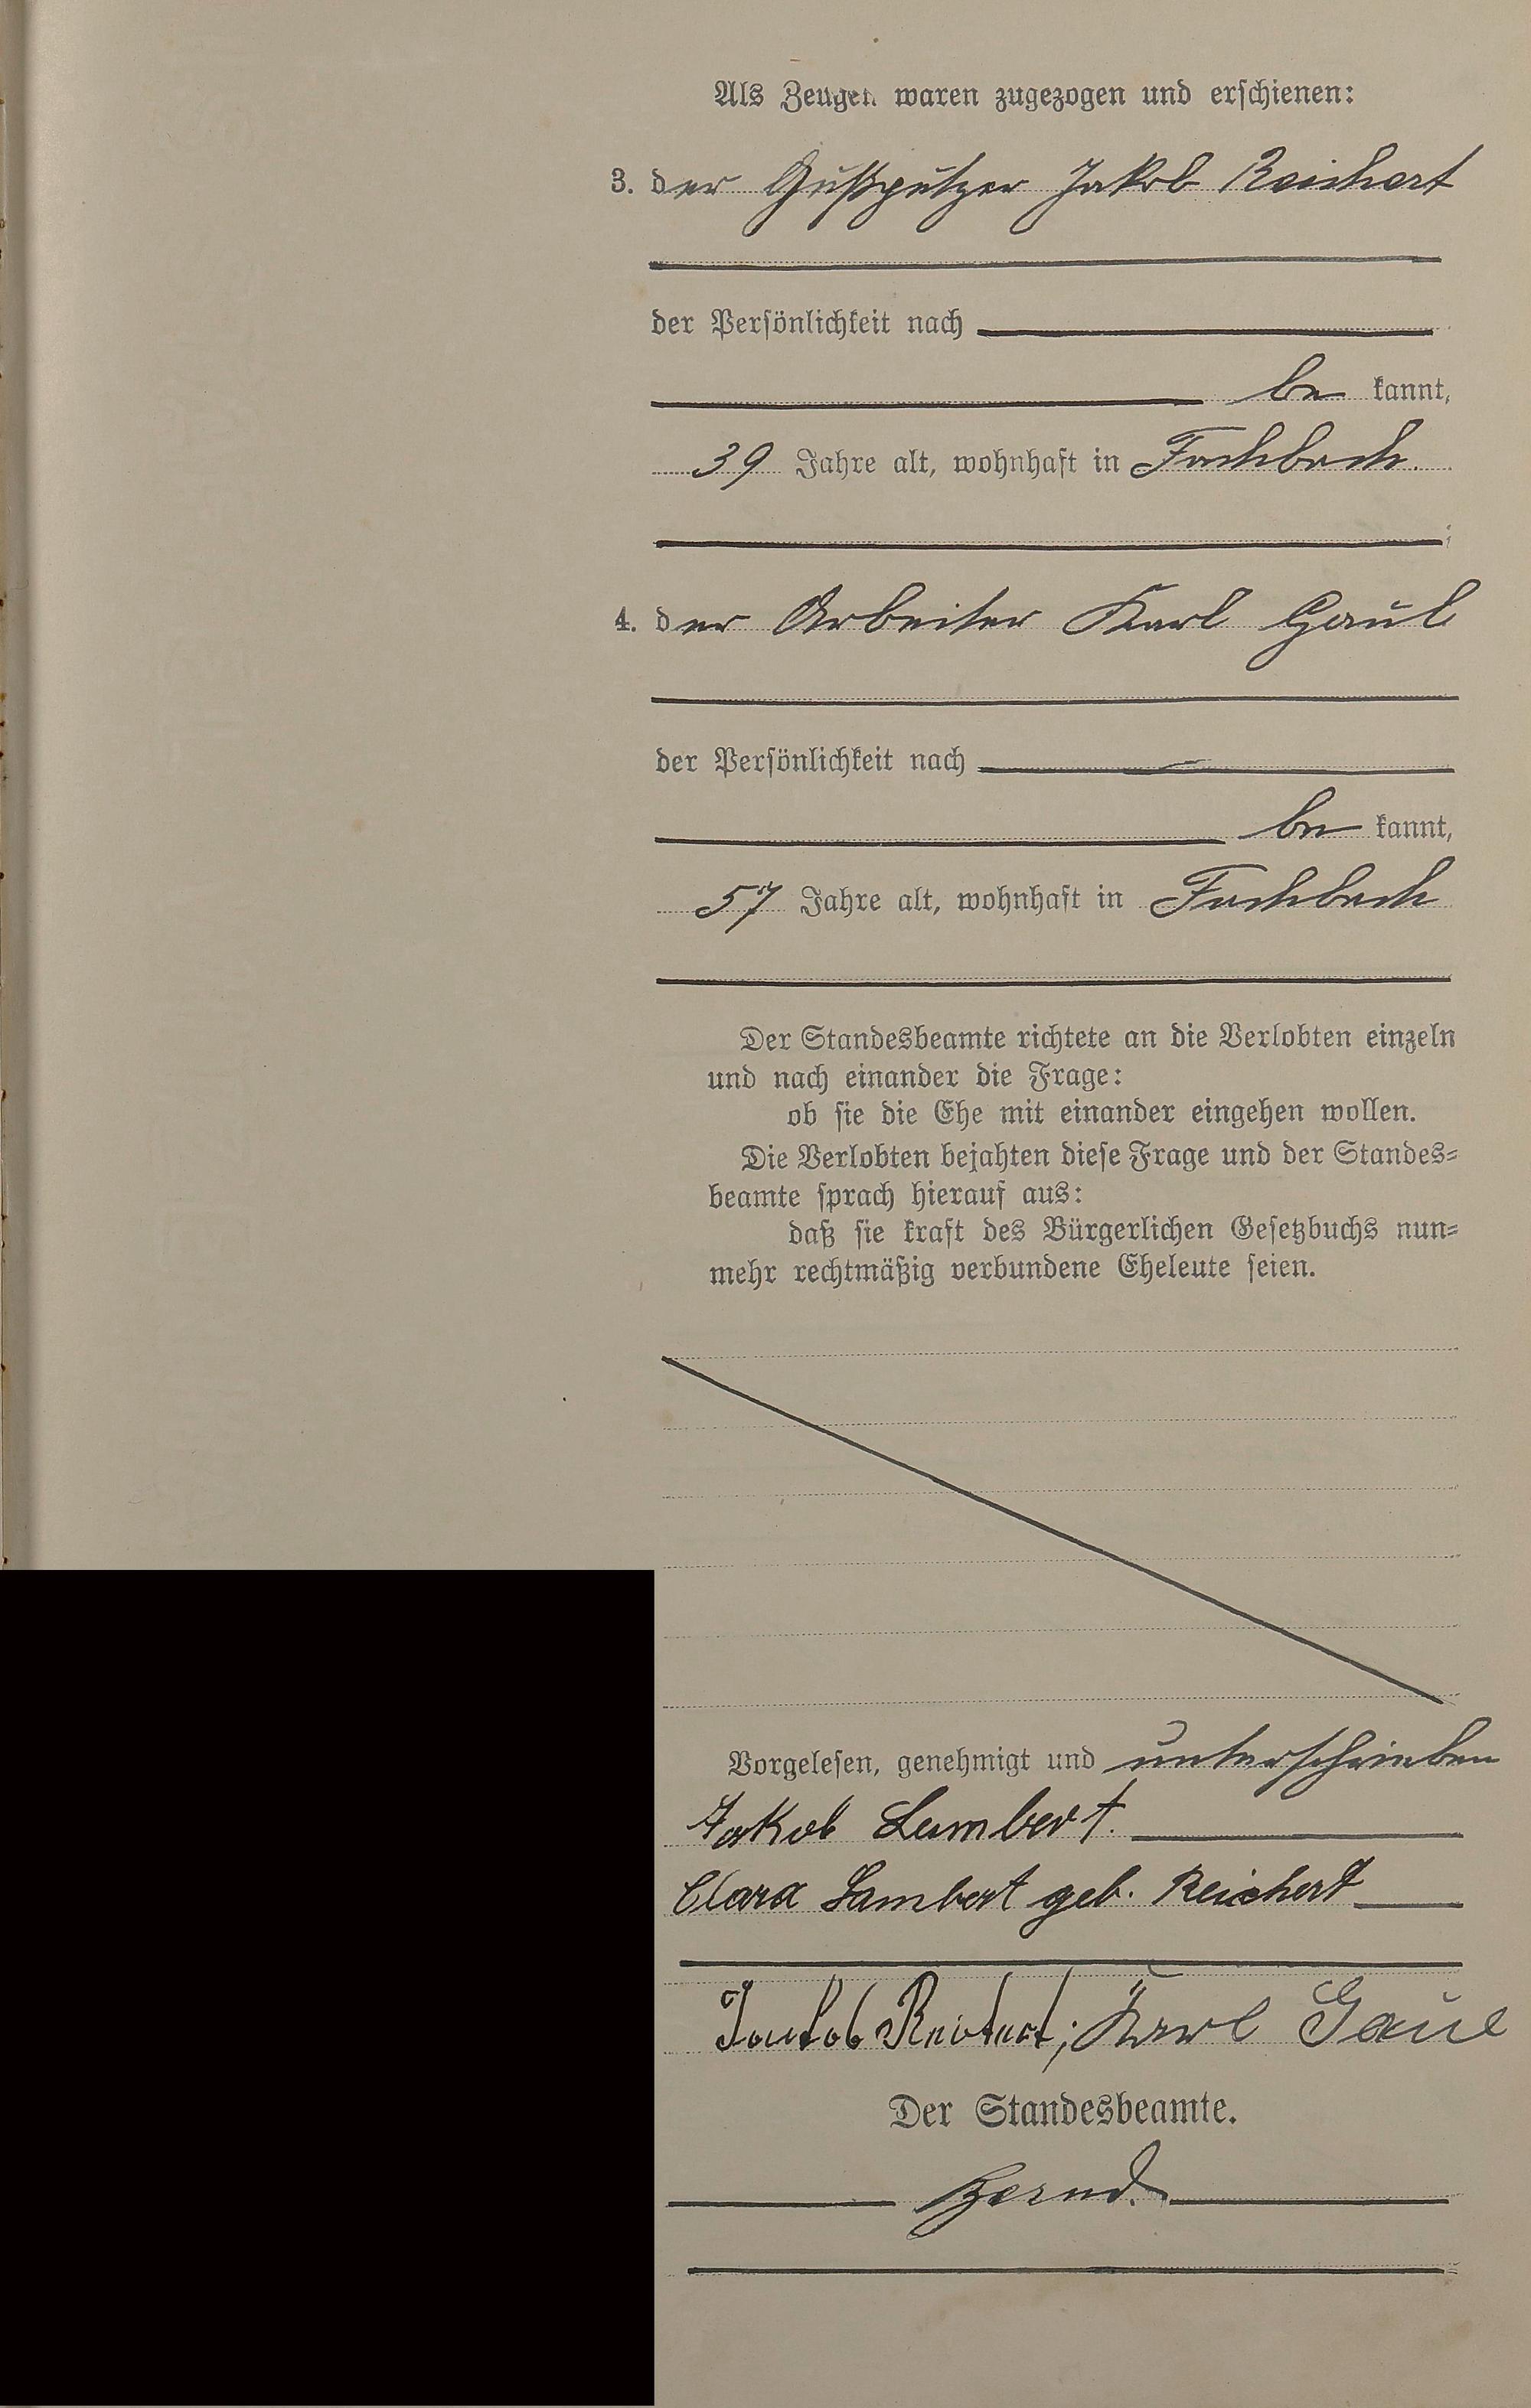 Als Zeugen waren zugezogen und erschienen:
3. der Gußputzer Jakob Reichert
der Persönlichkeit nach
be kannt,
39 Jahre alt, wohnhaft in Fachbach.
;
4. der Arbeiter Karl Gaul
der Persönlichkeit nach
be kannt,
57 Jahre alt, wohnhaft in Fachbach
Der Standesbeamte richtete an die Verlobten einzeln
und nach einander die Frage:
ob sie die Ehe mit einander eingehen wollen.
Die Verlobten bejahten diese Frage und der Standes=
beamte sprach hierauf aus:
daß sie kraft des Bürgerlichen Gesetzbuchs nun=
mehr rechtmäßig verbundene Eheleute seien.
Vorgelesen, genehmigt und unterschrieben
Jakob Lambert.
Clara Lambert geb. Reichert
Jakob Reichert; Karl Gaul
Der Standesbeamte.